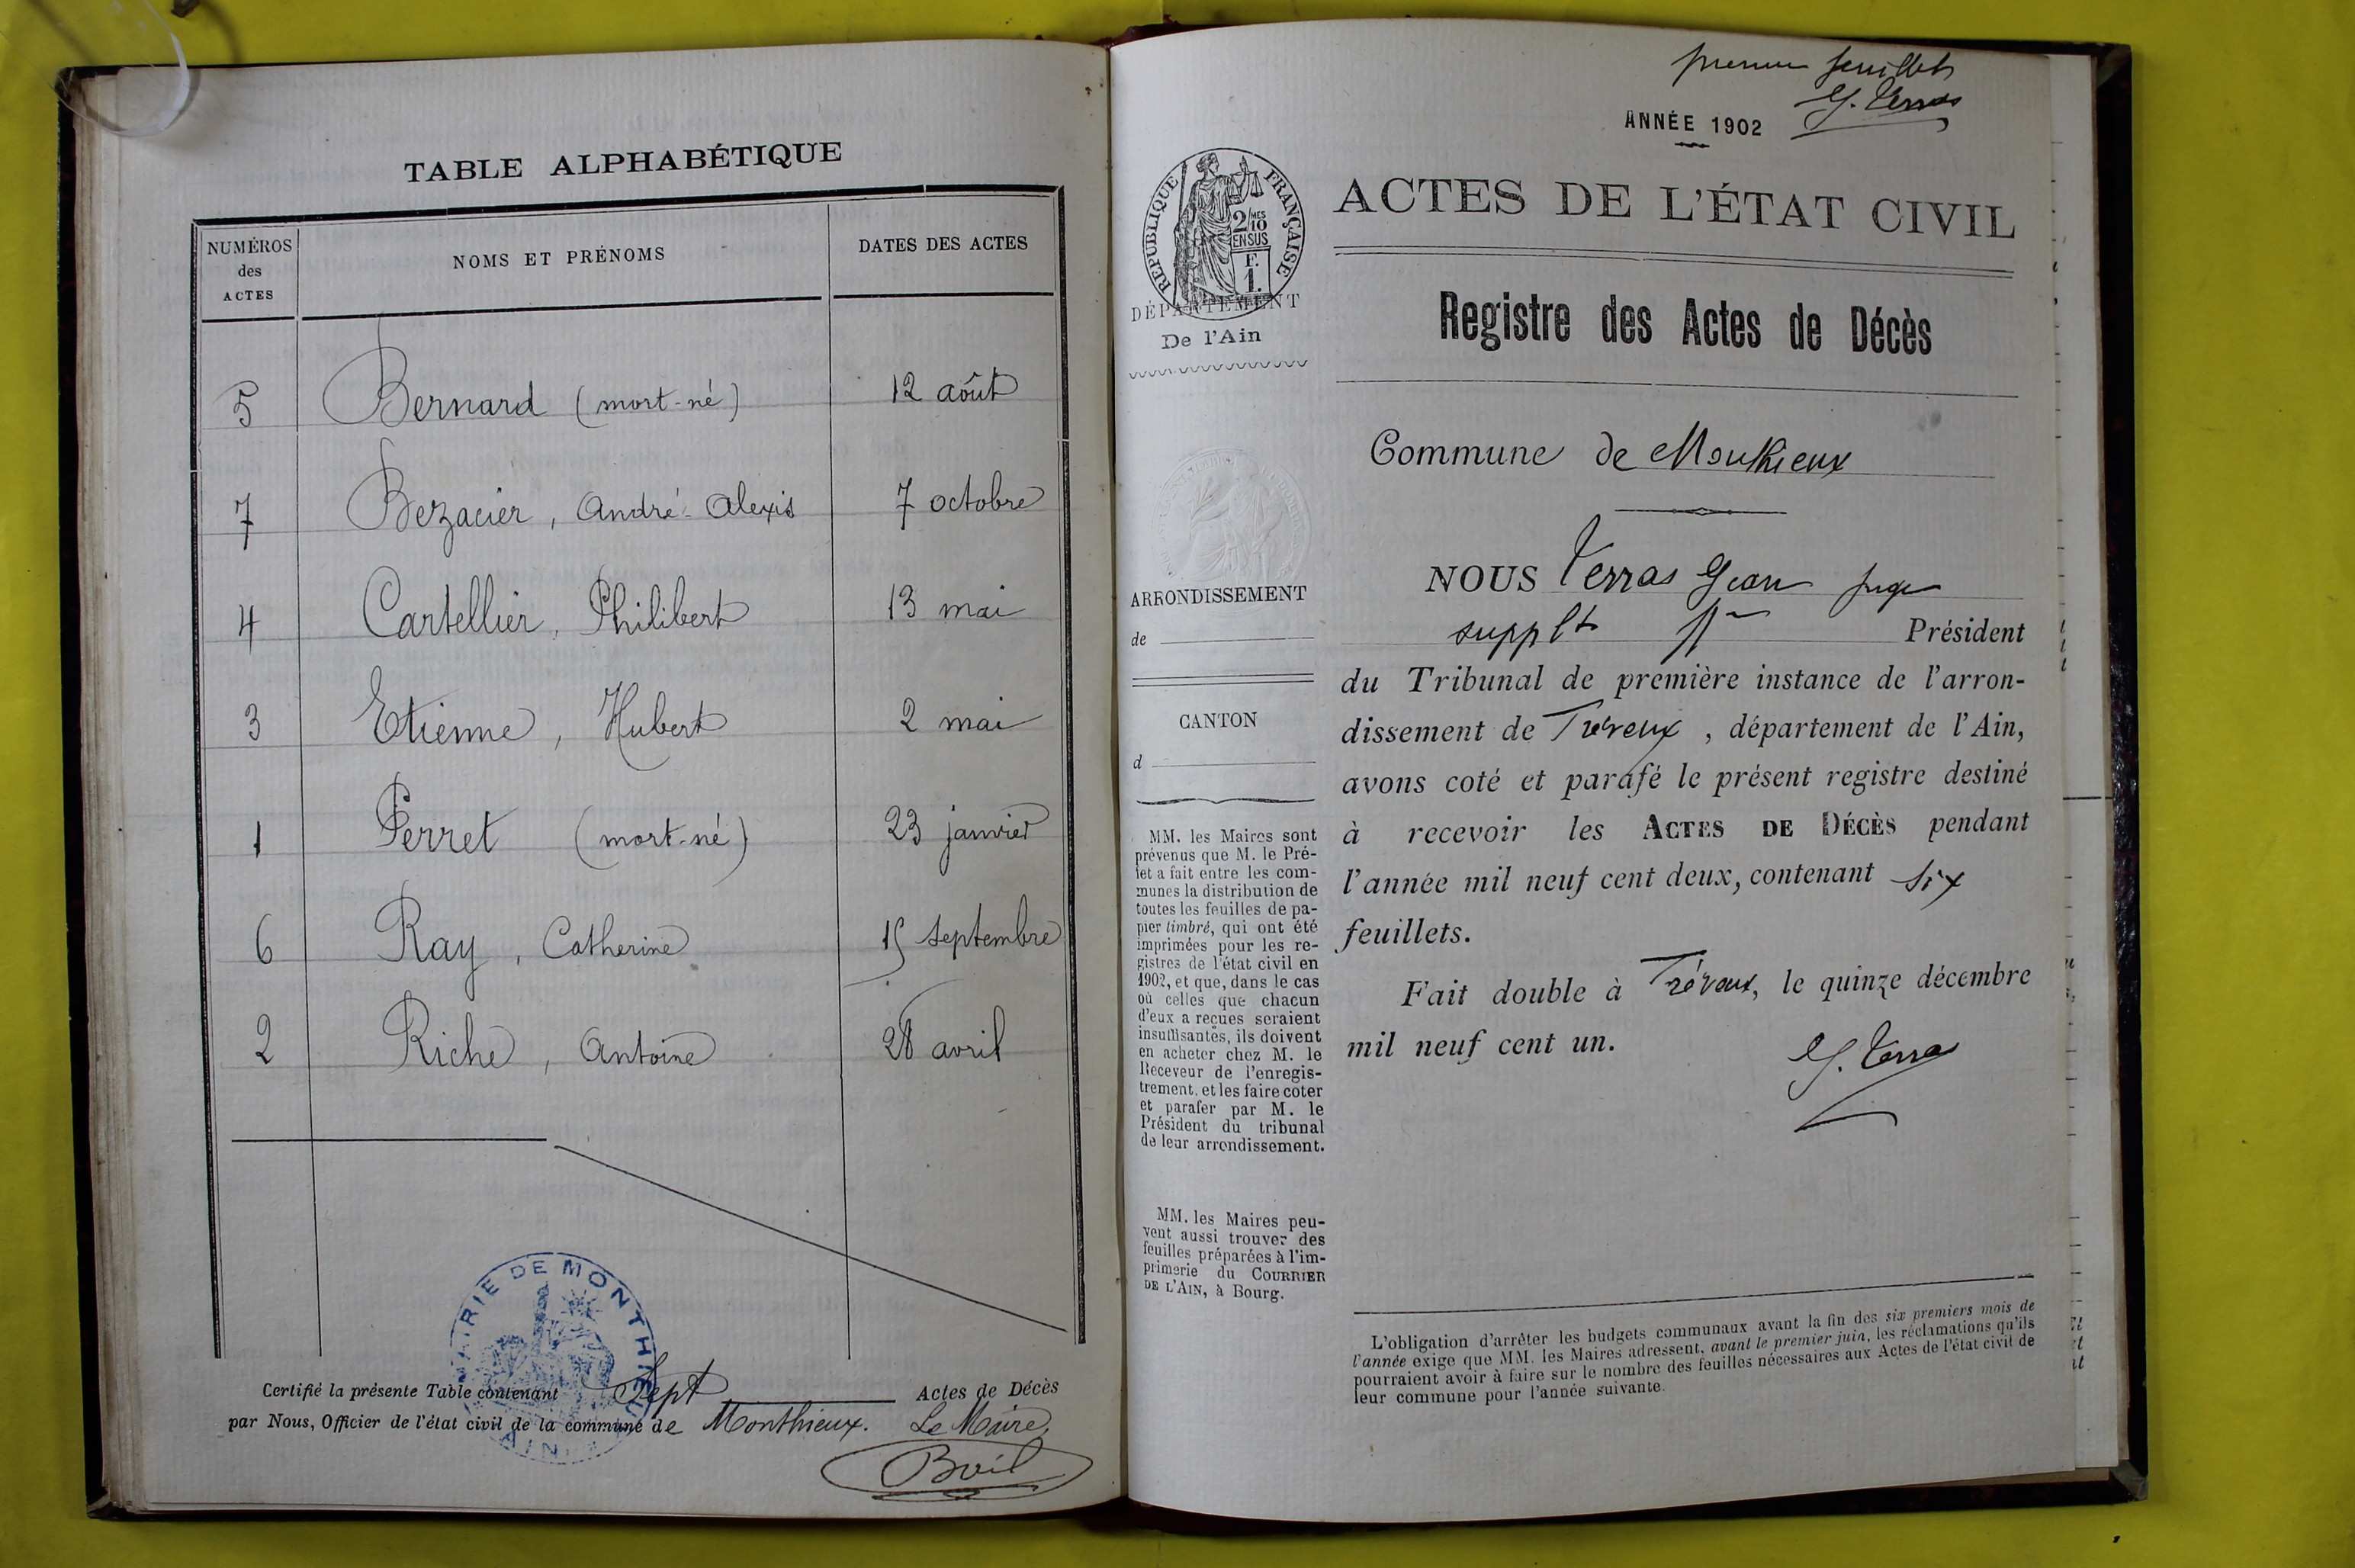 TABLE ALPHABÉTIQUE
NUMÉROS des ACTES NOMS ET PRÉNOMS DATES DES ACTES
5 Bernard (mort-né) 12 août
7 Bezacier, André-Alexis 7 octobre
4 Cartellier, Philibert 13 mai
3 Etienne, Hubert 2 mai
1 Perret (mort-né) 23 janvier
6 Ray, Catherine 15 septembre
2 Riche, Antoine 28 avril
MAIRIE DE MONTHIEUX
AIN
Certifié la présente Table contenant Sept Actes de Décès
par Nous, Officier de l'état civil de la commune de Monthieux. Le Maire,
premier feuillet
G. Terras
ANNÉE 1902
RÉPUBLIQUE FRANÇAISE
2/10MES
EN SUS
F.
1.
DÉPARTEMENT
De l'Ain
ARRONDISSEMENT
de
CANTON
d
MM. les Maires sont
prévenus que M. le Pré-
fet a fait entre les com-
munes la distribution de
toutes les feuilles de pa-
pier timbré, qui ont été
imprimées pour les re-
gistres de l'état civil en
1902, et que, dans le cas
où celles que chacun
d'eux a reçues seraient
insuffisantes, ils doivent
en acheter chez M. le
Receveur de l'enregis-
trement, et les faire coter
et parafer par M. le
Président du tribunal
de leur arrondissement.
MM. les Maires peu-
vent aussi trouver des
feuilles préparées à l'im-
primerie du COURRIER
DE L'AIN, à Bourg.
ACTES DE L'ÉTAT CIVIL
Registre des Actes de Décès
Commune de Monthieux
NOUS Terras Jean juge
supplt Président
du Tribunal de première instance de l'arron-
dissement de Trévoux, département de l'Ain,
avons coté et parafé le présent registre destiné
à recevoir les ACTES DE DÉCÈS pendant
l'année mil neuf cent deux, contenant six
feuillets.
Fait double à Trévoux, le quinze décembre
mil neuf cent un.
G. Terras
L'obligation d'arrêter les budgets communaux avant la fin des six premiers mois de
l'année exige que MM. les Maires adressent, avant le premier juin, les réclamations qu'ils
pourraient avoir à faire sur le nombre des feuilles nécessaires aux Actes de l'état civil de
leur commune pour l'année suivante.